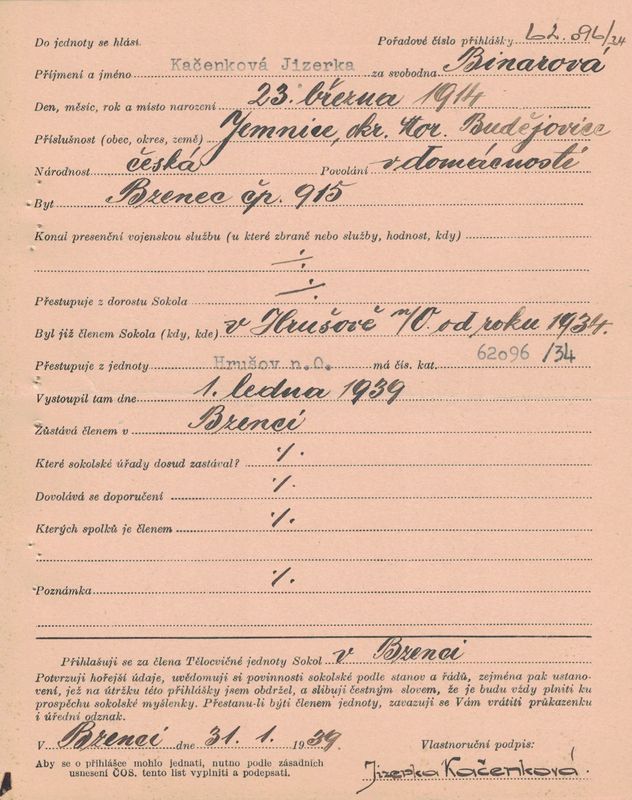 Do jednoty se hlásí. Pořadové číslo přihlášky 62.096/34
Příjmení a jméno Kačenková Jizerka za svobodna Binarová
Den, měsíc, rok a místo narození 23. března 1914
Příslušnost (obec, okres, země) Jemnice, okr. Mor. Budějovice
Národnost česká Povolání v domácnosti
Byt Bzenec čp. 915
Konal presenční vojenskou službu (u které zbraně nebo služby, hodnost, kdy)
÷
Přestupuje z dorostu Sokola ÷
Byl již členem Sokola (kdy, kde) v Hrušově n/O. od roku 1934.
Přestupuje z jednoty Hrušov n.O. má čís. kat. 62096 /34
Vystoupil tam dne 1. ledna 1939
Zůstává členem v Bzenci
Které sokolské úřady dosud zastával? ·/.
Dovolává se doporučení ·/.
Kterých spolků je členem ·/.
Poznámka ·/.
Přihlašuji se za člena Tělocvičné jednoty Sokol v Bzenci
Potvrzuji hořejší údaje, uvědomuji si povinnosti sokolské podle stanov a řádů, zejména pak ustano-
vení, jež na útržku této přihlášky jsem obdržel, a slibuji čestným slovem, že je budu vždy plniti ku
prospěchu sokolské myšlenky. Přestanu-li býti členem jednoty, zavazuji se Vám vrátiti průkazenku
i úřední odznak.
V Bzenci dne 31. 1. 1939. Vlastnoruční podpis:
Aby se o přihlášce mohlo jednati, nutno podle zásadních
usnesení ČOS. tento list vyplniti a podepsati. Jizerka Kačenková.